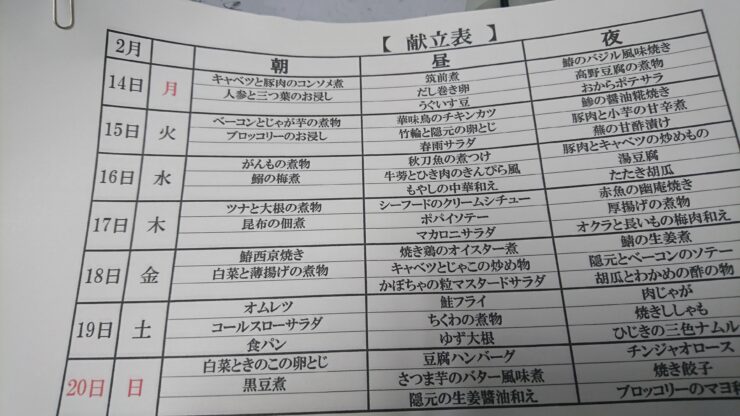 【 献立表 】
2月 朝 昼 夜
14日 月 キャベツと豚肉のコンソメ煮 筑前煮 鰆のバジル風味焼き
人参と三つ葉のお浸し だし巻き卵 高野豆腐の煮物
うぐいす豆 おからポテサラ
15日 火 ベーコンとじゃが芋の煮物 華味鳥のチキンカツ 鯵の醤油糀焼き
ブロッコリーのお浸し 竹輪と隠元の卵とじ 豚肉と小芋の甘辛煮
春雨サラダ 蕪の甘酢漬け
16日 水 がんもの煮物 秋刀魚の煮つけ 豚肉とキャベツの炒めもの
鰯の梅煮 牛蒡とひき肉のきんぴら風 湯豆腐
もやしの中華和え たたき胡瓜
17日 木 ツナと大根の煮物 シーフードのクリームシチュー 赤魚の幽庵焼き
昆布の佃煮 ポパイソテー 厚揚げの煮物
マカロニサラダ オクラと長いもの梅肉和え
18日 金 鰆西京焼き 焼き鶏のオイスター煮 鯖の生姜煮
白菜と薄揚げの煮物 キャベツとじゃこの炒め物 隠元とベーコンのソテー
かぼちゃの粒マスタードサラダ 胡瓜とわかめの酢の物
19日 土 オムレツ 鮭フライ 肉じゃが
コールスローサラダ ちくわの煮物 焼きししゃも
食パン ゆず大根 ひじきの三色ナムル
20日 日 白菜ときのこの卵とじ 豆腐ハンバーグ チンジャオロース
黒豆煮 さつま芋のバター風味煮 焼き餃子
隠元の生姜醤油和え ブロッコリーのマヨ